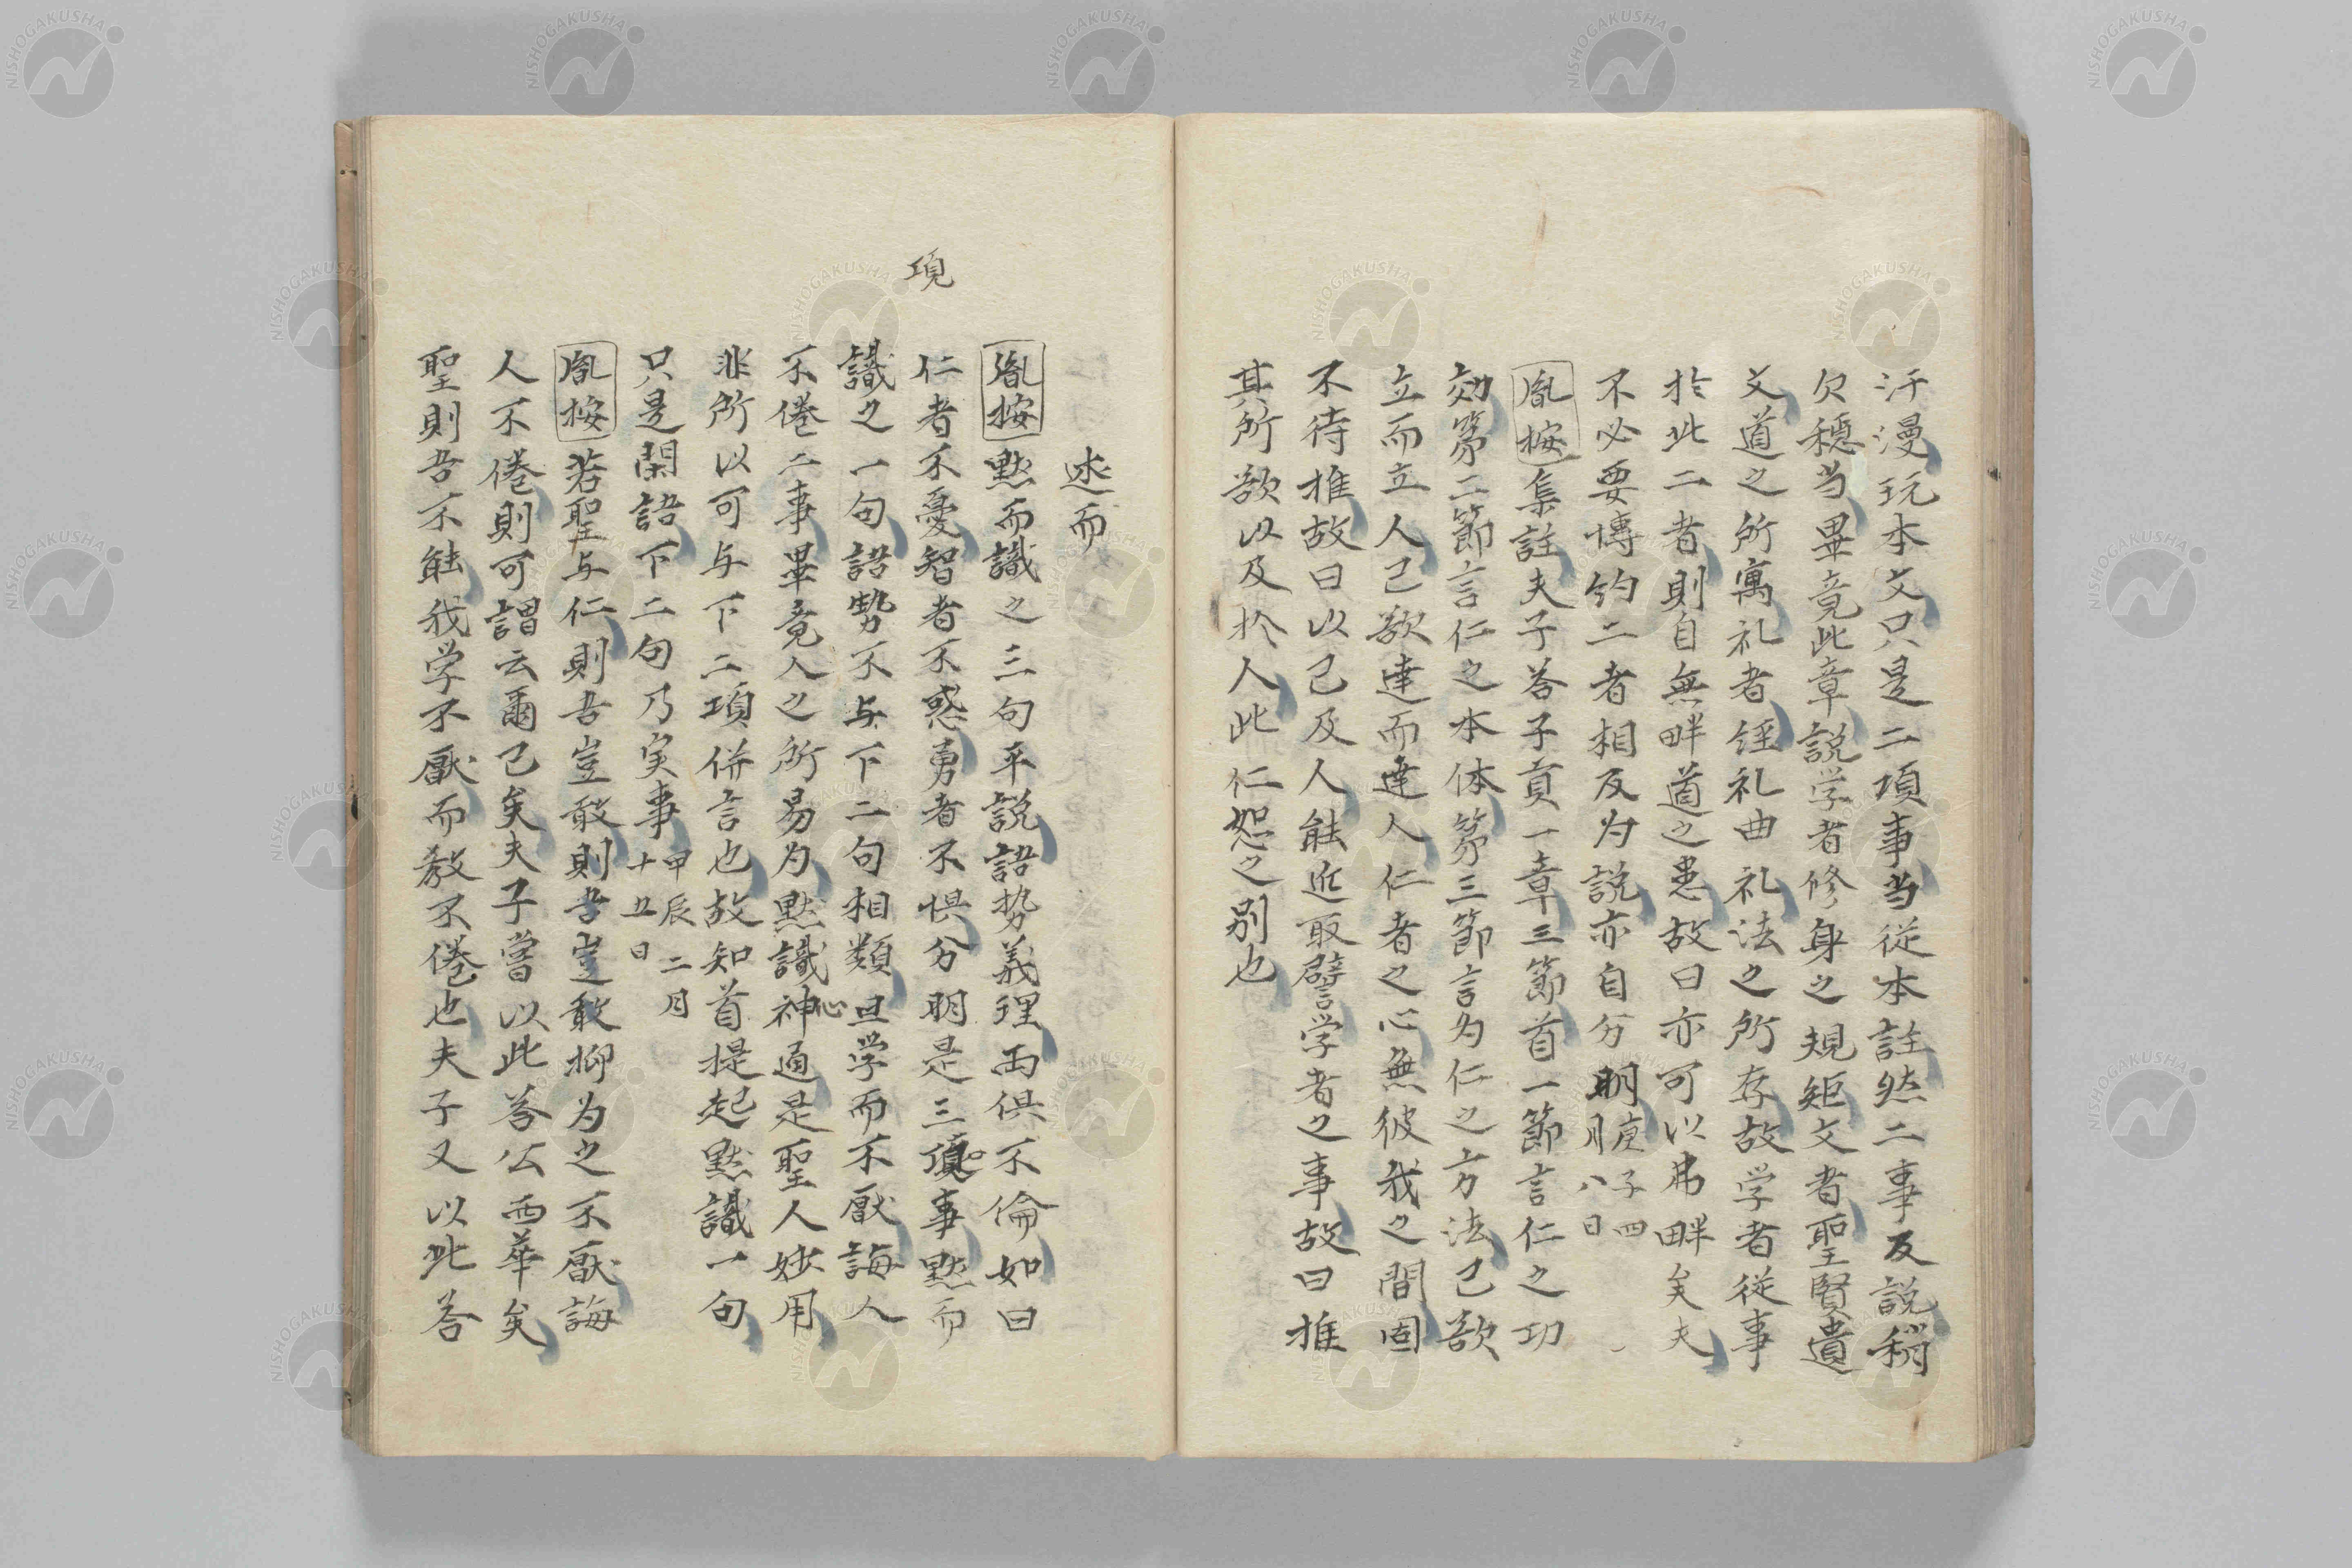 汗漫玩本文只是二項事当従本註然二事反説稍
欠穏当畢竟此章説学者修身之規矩文者聖賢遺
文道之所寓礼者経礼曲礼法之所存故学者従事
於此二者則自無畔道之患故曰亦可以弗畔矣夫
不必要博約二者相反为説亦自分明庚子四
月八日
胤按集註夫子答子貢一章三節首一節言仁之功
効第二節言仁之本体第三節言为仁之方法己欲
立而立人己欲達而達人仁者之心無彼我之間固
不待推故曰以己及人能近取譬学者之事故曰推
其所欲以及於人此仁恕之別也
述而
胤按黙而識之三句平説語势義理両倶不倫如曰
仁者不憂智者不惑勇者不惧分明是三項事黙而
項
識之一句語勢不与下二句相類且学而不厭誨人
不倦二事畢竟人之所易为黙識心神通是聖人妙用
非所以可与下二項併言也故知首提起黙識一句
只是閑語下二句乃実事甲辰二月
十五日
胤按若聖与仁則吾豈敢則吾豈敢抑为之不厭誨
人不倦則可謂云爾已矣夫子嘗以此答公西華矣
聖則吾不能我学不厭而教不倦也夫子又以此答
NISHOGAKUSHA